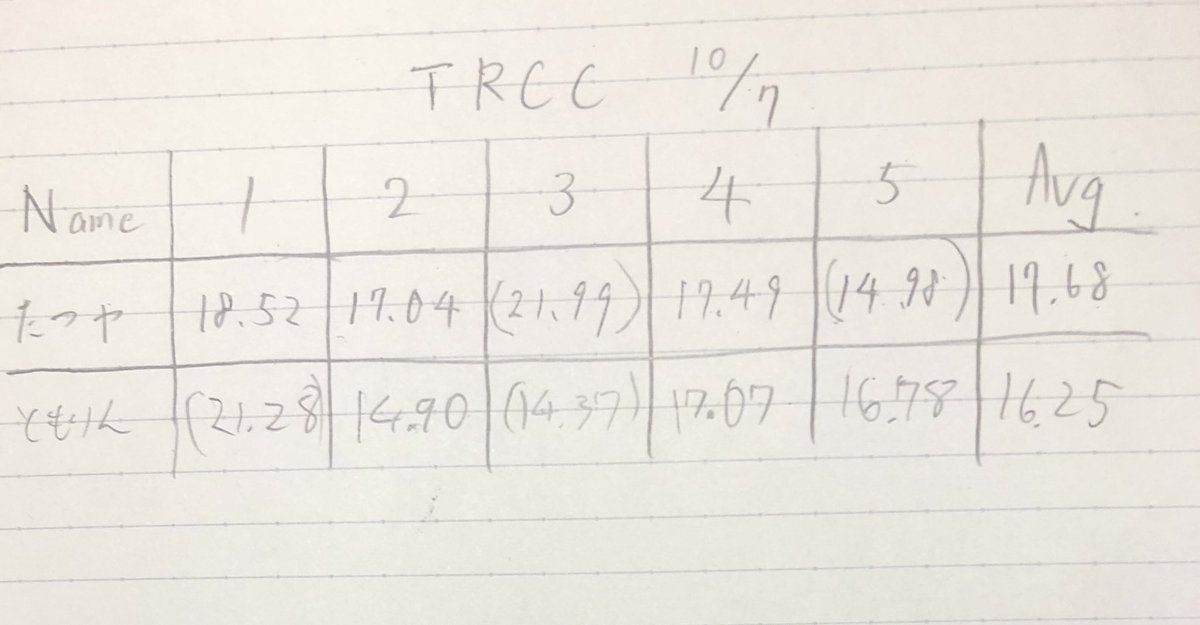 TRCC 10/7
Name 1 2 3 4 5 Avg.
たつや 18.52 17.04 (21.99) 17.49 (14.98) 17.68
ともりん (21.28) 14.90 (14.37) 17.07 16.78 16.25